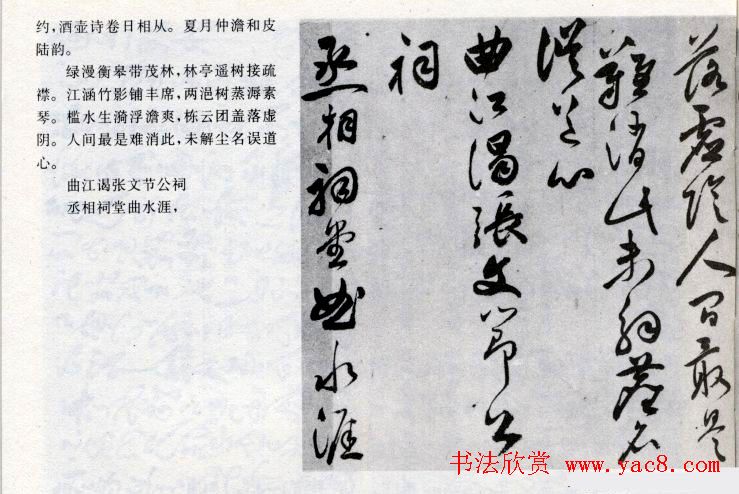 约，酒壶诗卷日相从。夏月仲澹和皮
陆韵。
绿漫衡皋带茂林，林亭遥树接疏
襟。江涵竹影铺丰席，两浥树蒸溽素
琴。槛水生漪浮澹爽，栋云团盖落虚
阴。人间最是难消此，未解尘名误道
心。
曲江谒张文节公祠
丞相祠堂曲水涯，
落虚阴人间最是
难消此未解尘名
误道心
曲江谒张文节公
祠
丞相祠堂曲水涯
书法欣赏 www.yac8.com